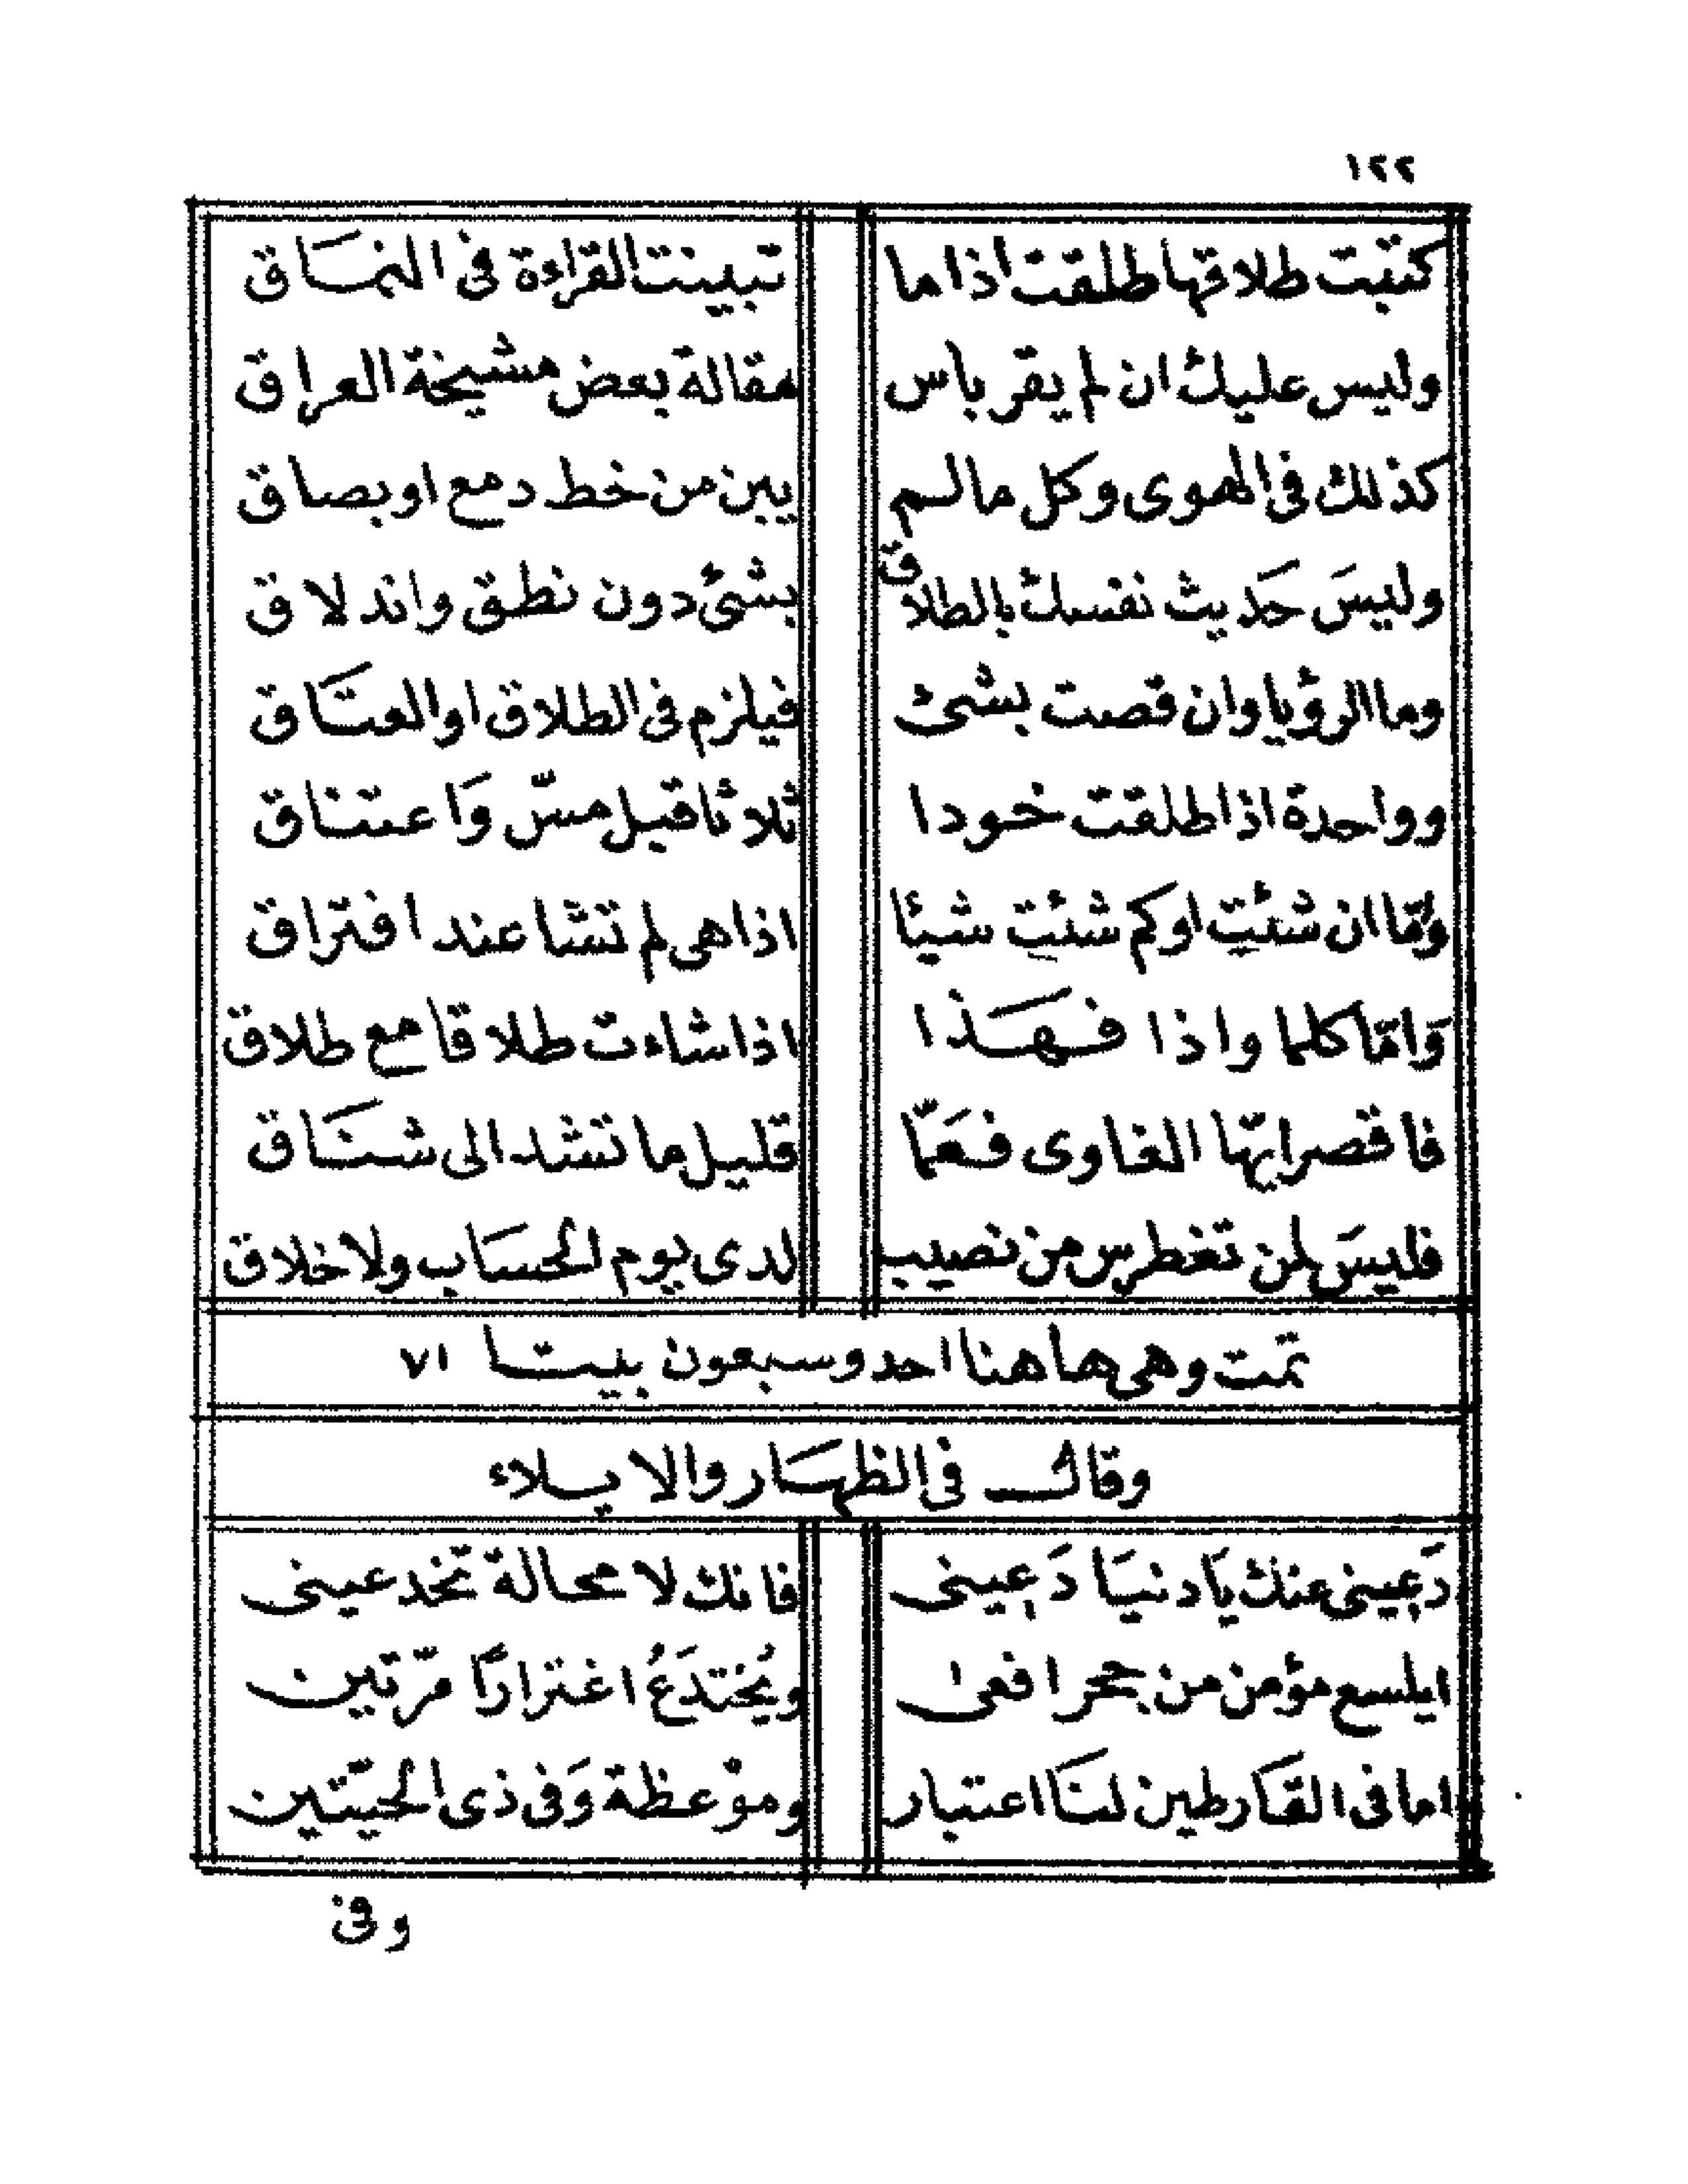 ١٢٢
كتبت طلاقها طلقت اذا ما تبينت القراءة فى النمَاق
وليس عليك ان لم يقر باس مقالة بعض مشيخة العراق
كذلك فى الهوى وكل ما لم يبن من خط دمع او بصاق
وليسَ حَديث نفسك بالطلاق بشئ دون نطق واندلاق
وما الرؤيا وان قصت بشئ فيلزم فى الطلاق او العتَاق
وواحدة اذا طلقت خودا ثلاثا قبل مسّ وَاعتناق
وَمّا ان شئتِ او كم شئتِ شيئا اذا هى لم تشا عند افتراق
وَامّا كلما واذا فهَذا اذا شاءت طلاقا مع طلاق
فاقصر ايّها الغاوى فعَمّا قليل ما تشد الى شنَاق
فليسَ لمن تغطرس من نصيب لدى يوم الحسَاب ولا خلاق
تمت وهى هاهنا احد وسبعون بيتا ٧١
وقال فى الظهَار والايلاء
دَعِينى عنك يَا دنيَا دَعِينى فانك لا محالة تخدعينى
ايلسع مؤمن من جحر افعىٰ ويُختدَعُ اغترارًا مرّتين
اما فى القَارطين لنَا اعتبار وموْعظة وَفى ذى الحيّتين
وفى